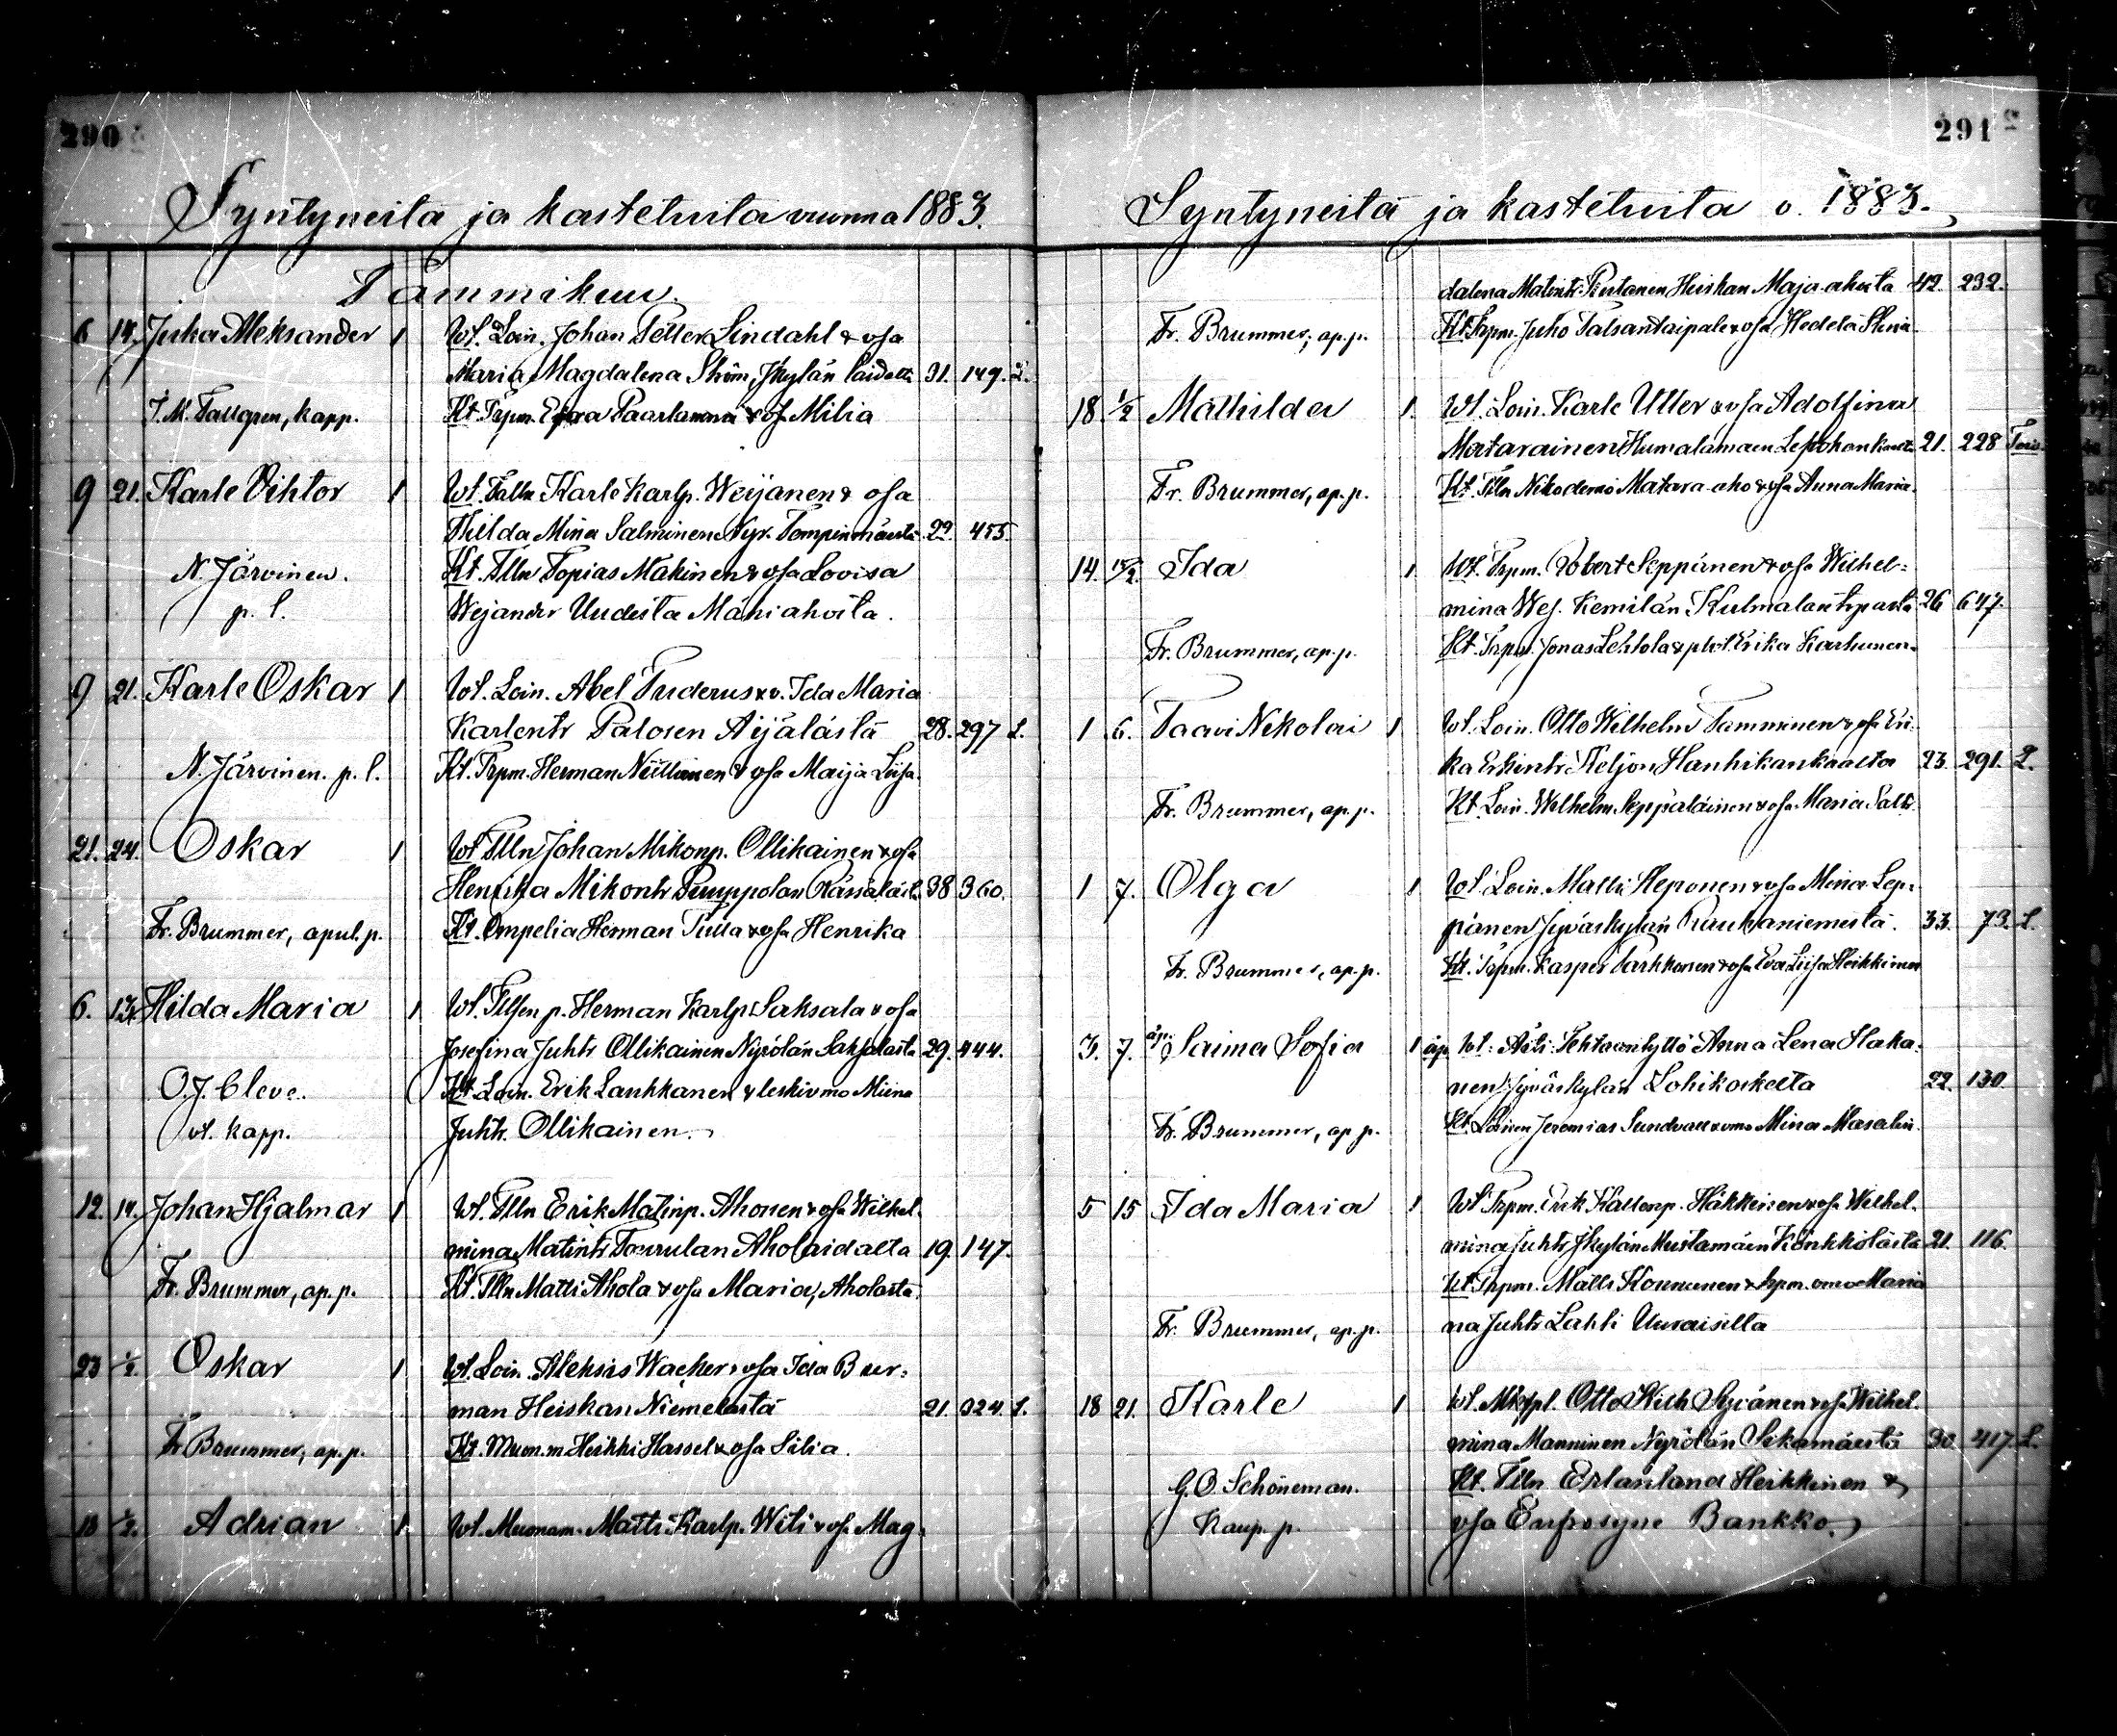 290
Syntyneitä ja kastetuita vuonna 1883.
Tammikuu.
6 14. Juha Aleksander 1 Wt. Loin. Johan Petter Lindahl & vsa
Maria Magdalena Ström, Jkylän laidalta 31. 149. L.
J. M. Tallgren, kapp. Kt. Trpm. Paarlamma & vsa Milia
9 21. Karle Viktor 1 Wt. Talln Karle Karlp. Weijanen & vsa
Thilda Mina Salminen Nyr. Tompinmäestä 29 455.
N. Järvinen. Kt. Tlln Topias Mäkinen & vsa Lovisa
p. l. Wejander Uudesta Mäniahosta.
9 21. Karle Oskar 1 Wt. Loin. Abel Tuderus & v. Ida Maria
Karlentr Palosen Äijälästä 28. 297 L.
N. Järvinen. p. l. Kt. Trpm. Herman Niittunen & vsa Maija Liisa
21. 24. Oskar 1 Wt Tlln Johan Mikonp. Ollikainen & vsa
Henrika Mikontr Puuppolan 38 360.
Fr. Brummer, apul. p. Kt. Ompelia Herman Tulla & vsa Henrika
6. 13. Hilda Maria 1 Wt. Tllsen p. Herman Karlp. Saksala & vsa
Josefina Juhtr Ollikainen Nyrölän Saksalasta 29. 444.
O. J. Cleve. Kt. Loin. Erik Lauhkanen & leskivmo Miina
vt. kapp. Juhtr. Ollikainen.
12. 14. Johan Hjalmar 1 Wt. Tlln Erik Matinp. Ahonen & vsa Wilhel-
mina Matintr Taurulan Aholaidalta 19. 147.
Fr. Brummer, ap. p. Kt. Tlln Matti Ahola & vsa Maria, Aholasta
23 1/2. Oskar 1 Wt. Loin. Aleksis Wacker & vsa Ida Bur-
man Heiskan Niemelästä 21. 324. L.
Fr Brummer, ap. p. Kt. Muon.m Heikki Hassel & vsa Silia.
18 1/2. Adrian 1 Wt. Muonam. Matts Karlp. Wili & vsa Mag-
291
Syntyneitä ja kastetuita v. 1883.
dalena Matintr. Heiskan Maja-aholta 42. 232.
Fr. Brummer, ap. p. Kt. Trpm. Juho Talsantaipale & vsa Hedda Stina
18. 1/2 Mathilda 1. Wt. Loin. Karle Uller & vsa Adolfina
Matarainen Humalamäen 21. 228
Fr. Brummer, ap. p. Kt. Tlln Nikodemo Matara-aho & vsa Anna Maria.
14. Ida 1 Wt. Trpm. Robert Seppänen & vsa Wilhel-
mina Wej. Kemilän Kulmalan trparta 26 647.
Fr. Brummer, ap. p. Kt. Trpm. Jonas Lehtola & Erika Karhunen.
1 6. Taavi Nikolai 1 Wt. Loin. Otto Wilhelm Tamminen & vsa Eri-
ka Erkintr Keljon Hanhikankaalta 23. 291. L.
Fr. Brummer, ap. p. Kt. Loin. Wilhelm Seppäläinen & vsa Maria
1 7. Olga 1 Wt. Loin. Matti Heponen & vsa Mina Lep-
pänen Jyväskylän Rauhaniemestä. 33. 73. L.
Fr. Brummer, ap. p. Kt. Trpm. Kasper Tarkkonen & vsa Eva Liisa Heikkinen
3. 7. äp. Saima Sofia 1 äp. Wt. Äiti: Tehtaantyttö Anna Lena Haka-
nen Jyväskylän Lohikoskelta 22. 130
Fr. Brummer, ap. p. Kt. Loinen Jeremias Sundvall & vmo Mina Masalin.
5 15 Ida Maria 1 Wt Trpm. Erik Kallenp. Häkkinen & vsa Wilhel-
mina Juhtr Jkylän Mustamäen Könkkölästä 21. 116.
Kt. Trpm. Matts Koununen & trpm. vmo Maria
Fr. Brummer, ap. p. na Juhtr Lahti Uuraisilta
18 21. Karle 1 Wt. Mktpl. Otto Wilh Syvänen & vsa Wilhel-
mina Manninen Nyrölän Sikamäestä 30 417. L.
G. O. Schöneman. Kt. Tlln Erlantand Heikkinen &
Kaup. p. vsa Eufrosyne Bankko.